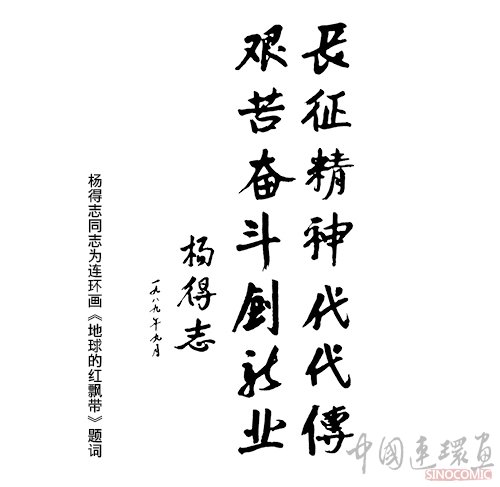 长征精神代代傳
艰苦奋斗创新业
杨得志
一九八九年九月
杨得志同志为连环画《地球的红飘带》题词
中國連環畫
SINOCOMIC